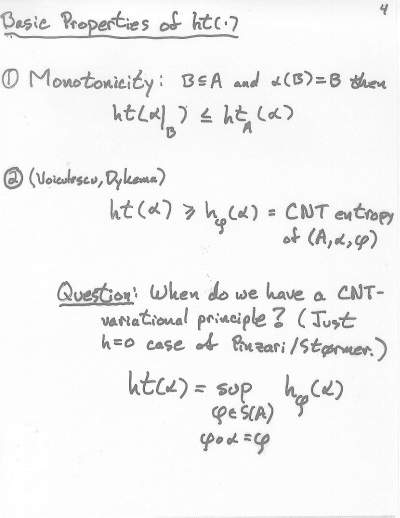 4
Basic Properties of ht(·)
① Monotonicity: B⊆A and α(B)=B then
ht(α|_B) ≤ ht_A(α)
② (Voiculescu, Dykema)
ht(α) ≥ h_φ(α) = CNT entropy
of (A,α,φ)
Question: When do we have a CNT-
variational principle? (Just
h=0 case of Pinzari/Størmer.)
ht(α) = sup h_φ(α)
φ∈S(A)
φ∘α=φ